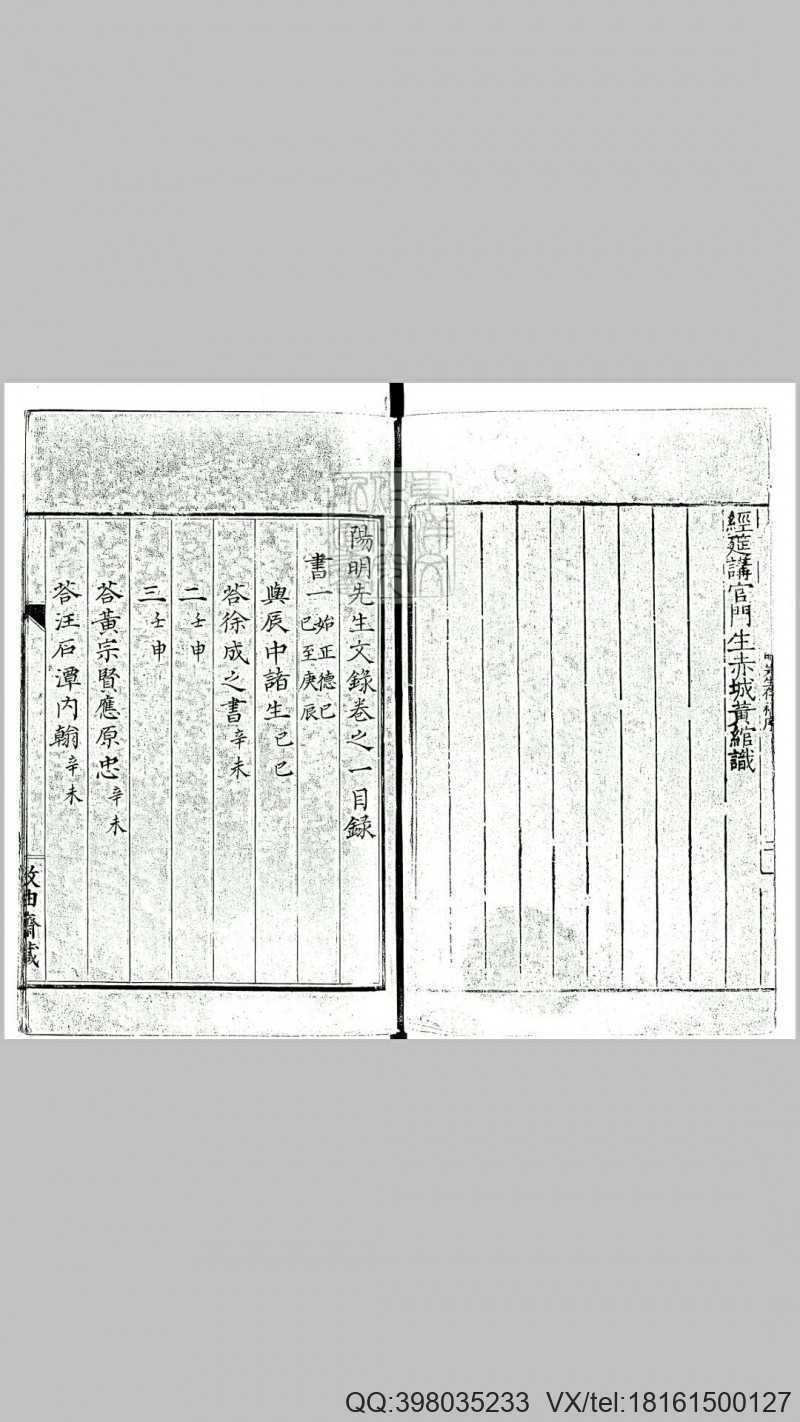 經筵講官門生赤城黃綰識
陽明先生文錄卷之一目錄
書一始正德己
巳至庚辰
與辰中諸生己巳
答徐成之書辛未
二壬申
三壬申
答黃宗賢應原忠辛未
答汪石潭內翰辛未
齋藏
QQ:398035233 VX/tel:18161500127